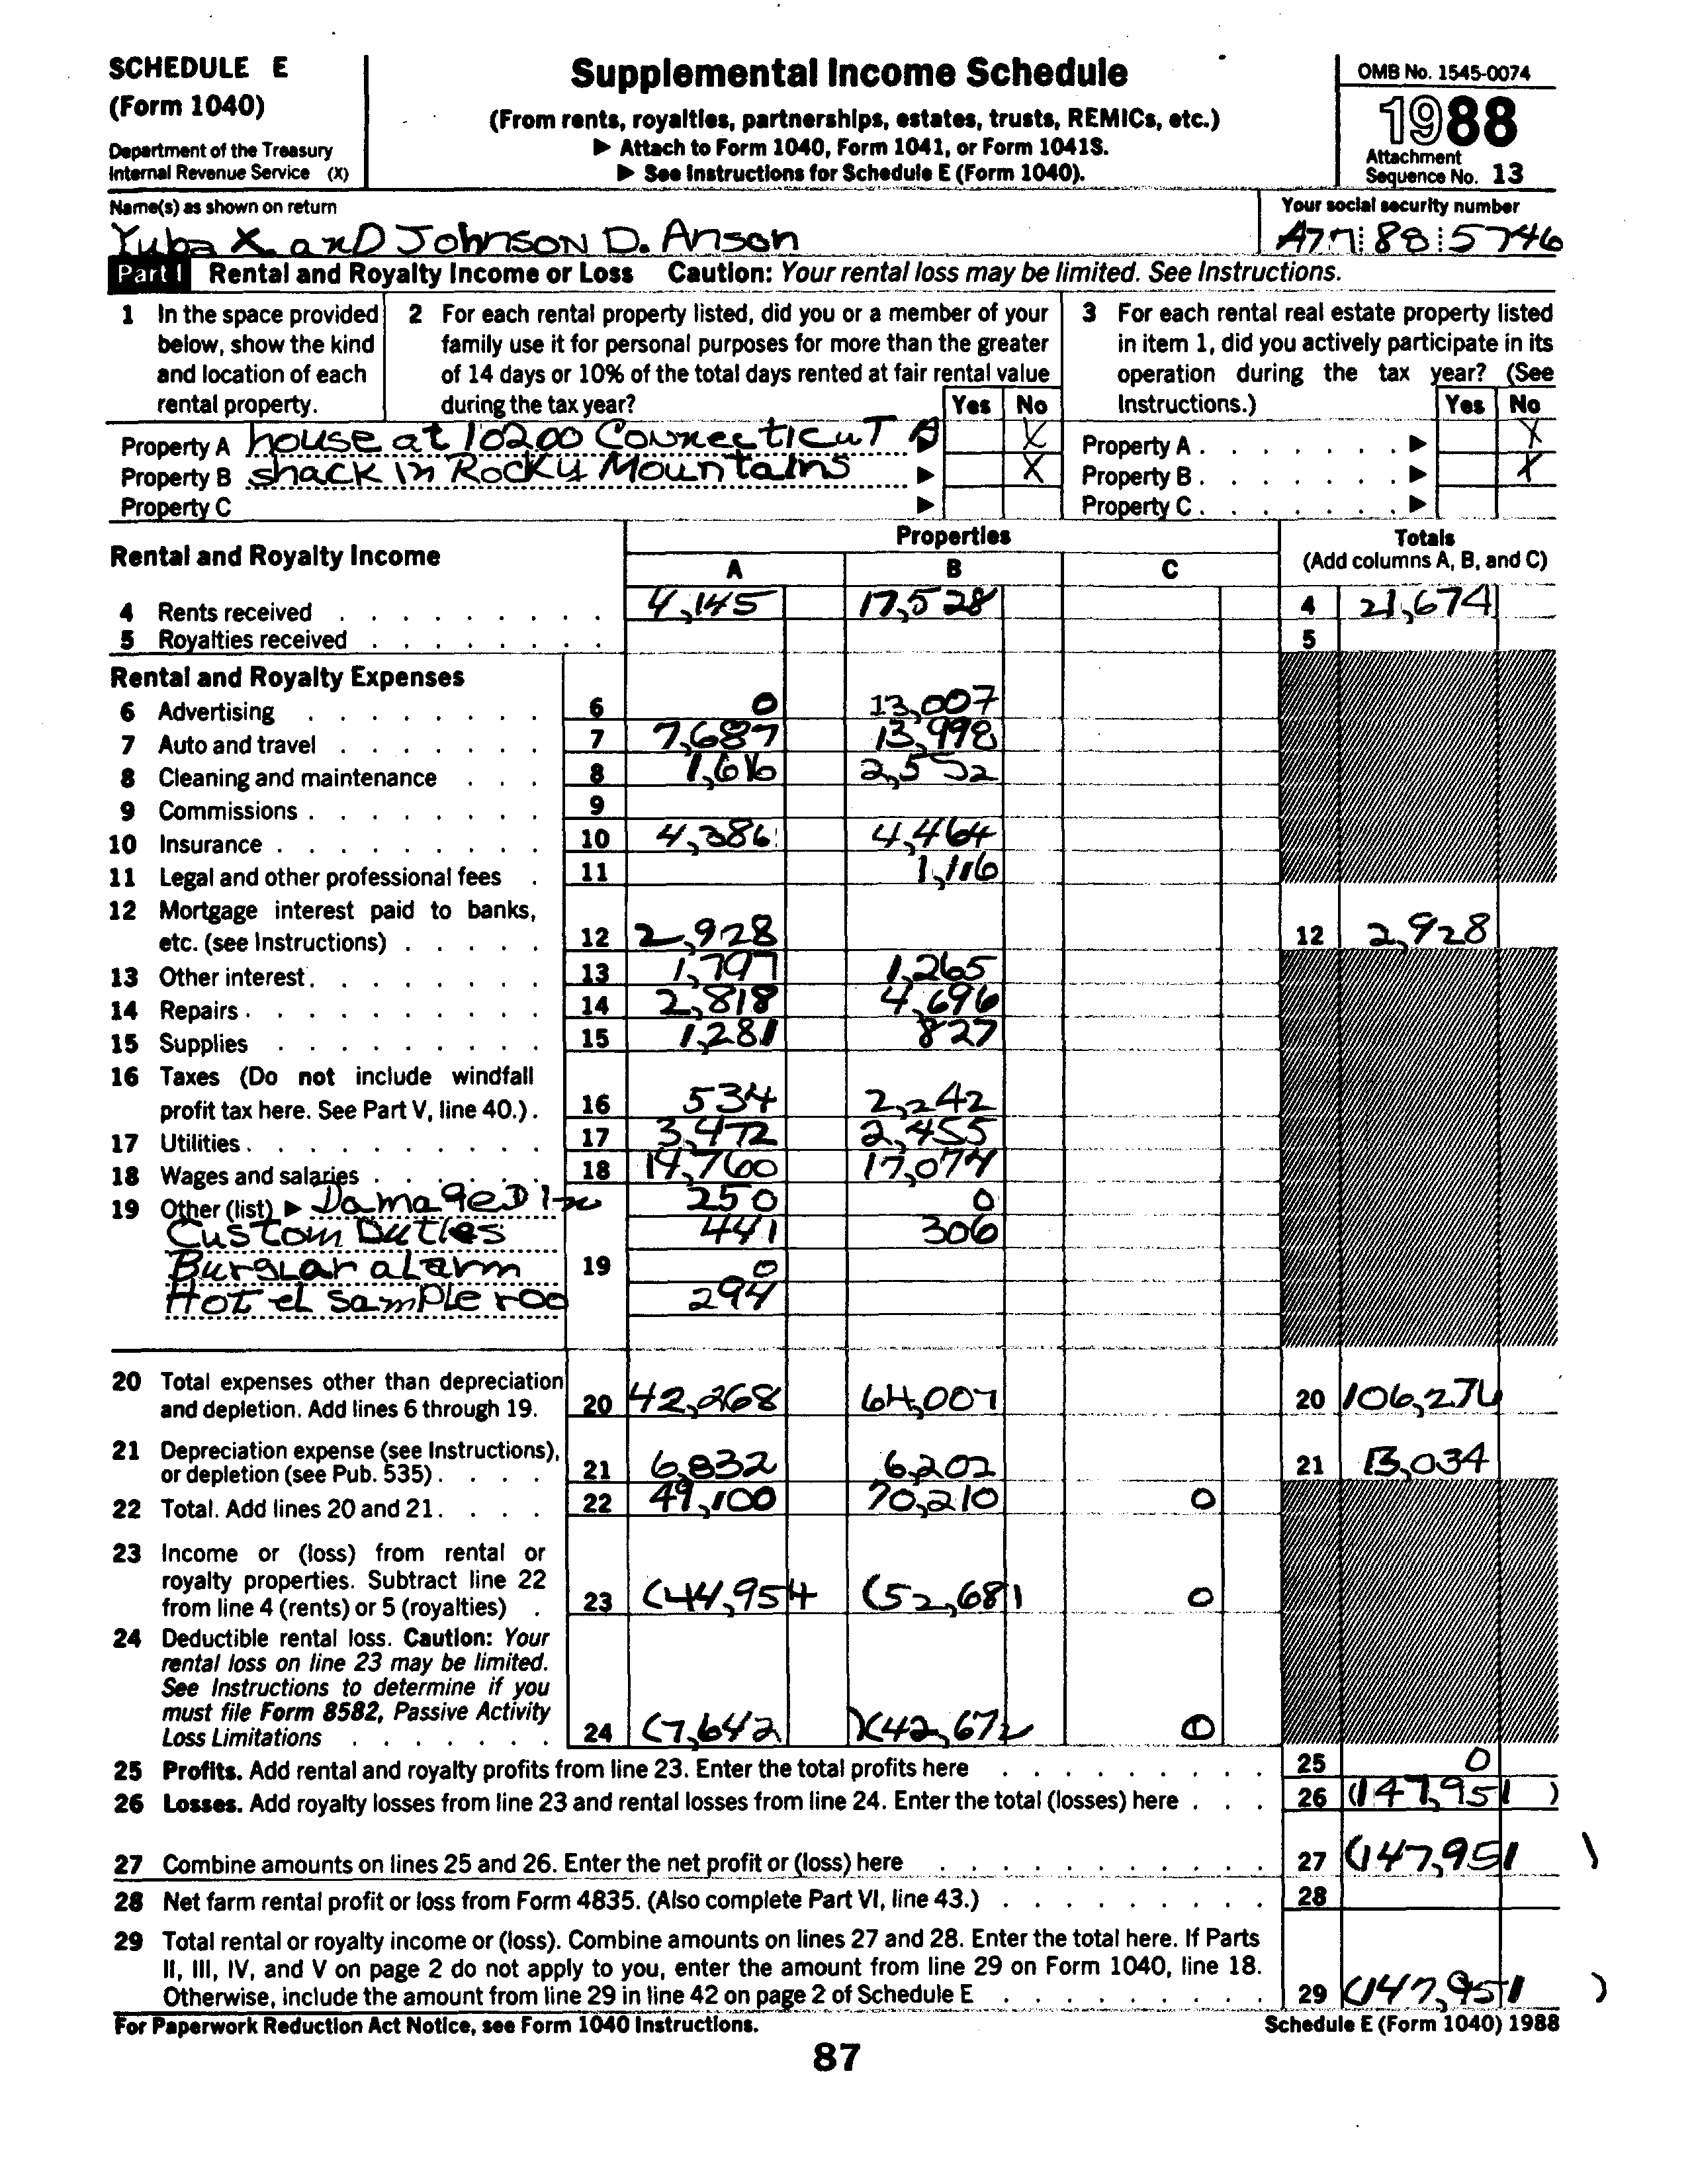 SCHEDULE E
(Form 1040)
Department of the Treasury
Internal Revenue Service (X)
Supplemental Income Schedule
(From rents, royalties, partnerships, estates, trusts, REMICs, etc.)
▶ Attach to Form 1040, Form 1041, or Form 1041S.
▶ See Instructions for Schedule E (Form 1040).
OMB No. 1545-0074
1988
Attachment
Sequence No. 13
Name(s) as shown on return
Yuba X. anD Johnson D. Anson
Your social security number
A77 88 5746
Part I Rental and Royalty Income or Loss Caution: Your rental loss may be limited. See Instructions.
1 In the space provided
below, show the kind
and location of each
rental property.
2 For each rental property listed, did you or a member of your
family use it for personal purposes for more than the greater
of 14 days or 10% of the total days rented at fair rental value
during the tax year? Yes No
3 For each rental real estate property listed
in item 1, did you actively participate in its
operation during the tax year? (See
Instructions.) Yes No
Property A house at 10200 Connecticut A ▶ X Property A ▶ X
Property B shack in Rocky Mountains ▶ X Property B ▶ X
Property C ▶ Property C ▶
Rental and Royalty Income
Properties
A B C
Totals
(Add columns A, B, and C)
4 Rents received 4,145 17,528 4 21,674
5 Royalties received 5
Rental and Royalty Expenses
6 Advertising 6 0 13,007
7 Auto and travel 7 7,687 13,998
8 Cleaning and maintenance 8 1,616 2,552
9 Commissions 9
10 Insurance 10 4,386 4,464
11 Legal and other professional fees 11 1,116
12 Mortgage interest paid to banks,
etc. (see Instructions) 12 2,928 12 2,928
13 Other interest 13 1,797 1,265
14 Repairs 14 2,818 4,696
15 Supplies 15 1,281 827
16 Taxes (Do not include windfall
profit tax here. See Part V, line 40.) 16 534 2,242
17 Utilities 17 3,472 2,455
18 Wages and salaries 18 14,760 17,074
19 Other (list) ▶ DamageD In 250 0
Custom Duties 441 306
Burglar alarm 19 0
Hotel sample roo 294
20 Total expenses other than depreciation
and depletion. Add lines 6 through 19. 20 42,268 64,007 20 106,276
21 Depreciation expense (see Instructions),
or depletion (see Pub. 535) 21 6,832 6,202 21 13,034
22 Total. Add lines 20 and 21 22 49,100 70,210 0
23 Income or (loss) from rental or
royalty properties. Subtract line 22
from line 4 (rents) or 5 (royalties) 23 (44,954 (52,681 0
24 Deductible rental loss. Caution: Your
rental loss on line 23 may be limited.
See Instructions to determine if you
must file Form 8582, Passive Activity
Loss Limitations 24 (7,642 )(42,672 0
25 Profits. Add rental and royalty profits from line 23. Enter the total profits here 25 0
26 Losses. Add royalty losses from line 23 and rental losses from line 24. Enter the total (losses) here 26 (147,951 )
27 Combine amounts on lines 25 and 26. Enter the net profit or (loss) here 27 (147,951 )
28 Net farm rental profit or loss from Form 4835. (Also complete Part VI, line 43.) 28
29 Total rental or royalty income or (loss). Combine amounts on lines 27 and 28. Enter the total here. If Parts
II, III, IV, and V on page 2 do not apply to you, enter the amount from line 29 on Form 1040, line 18.
Otherwise, include the amount from line 29 in line 42 on page 2 of Schedule E 29 (147,951 )
For Paperwork Reduction Act Notice, see Form 1040 Instructions. Schedule E (Form 1040) 1988
87